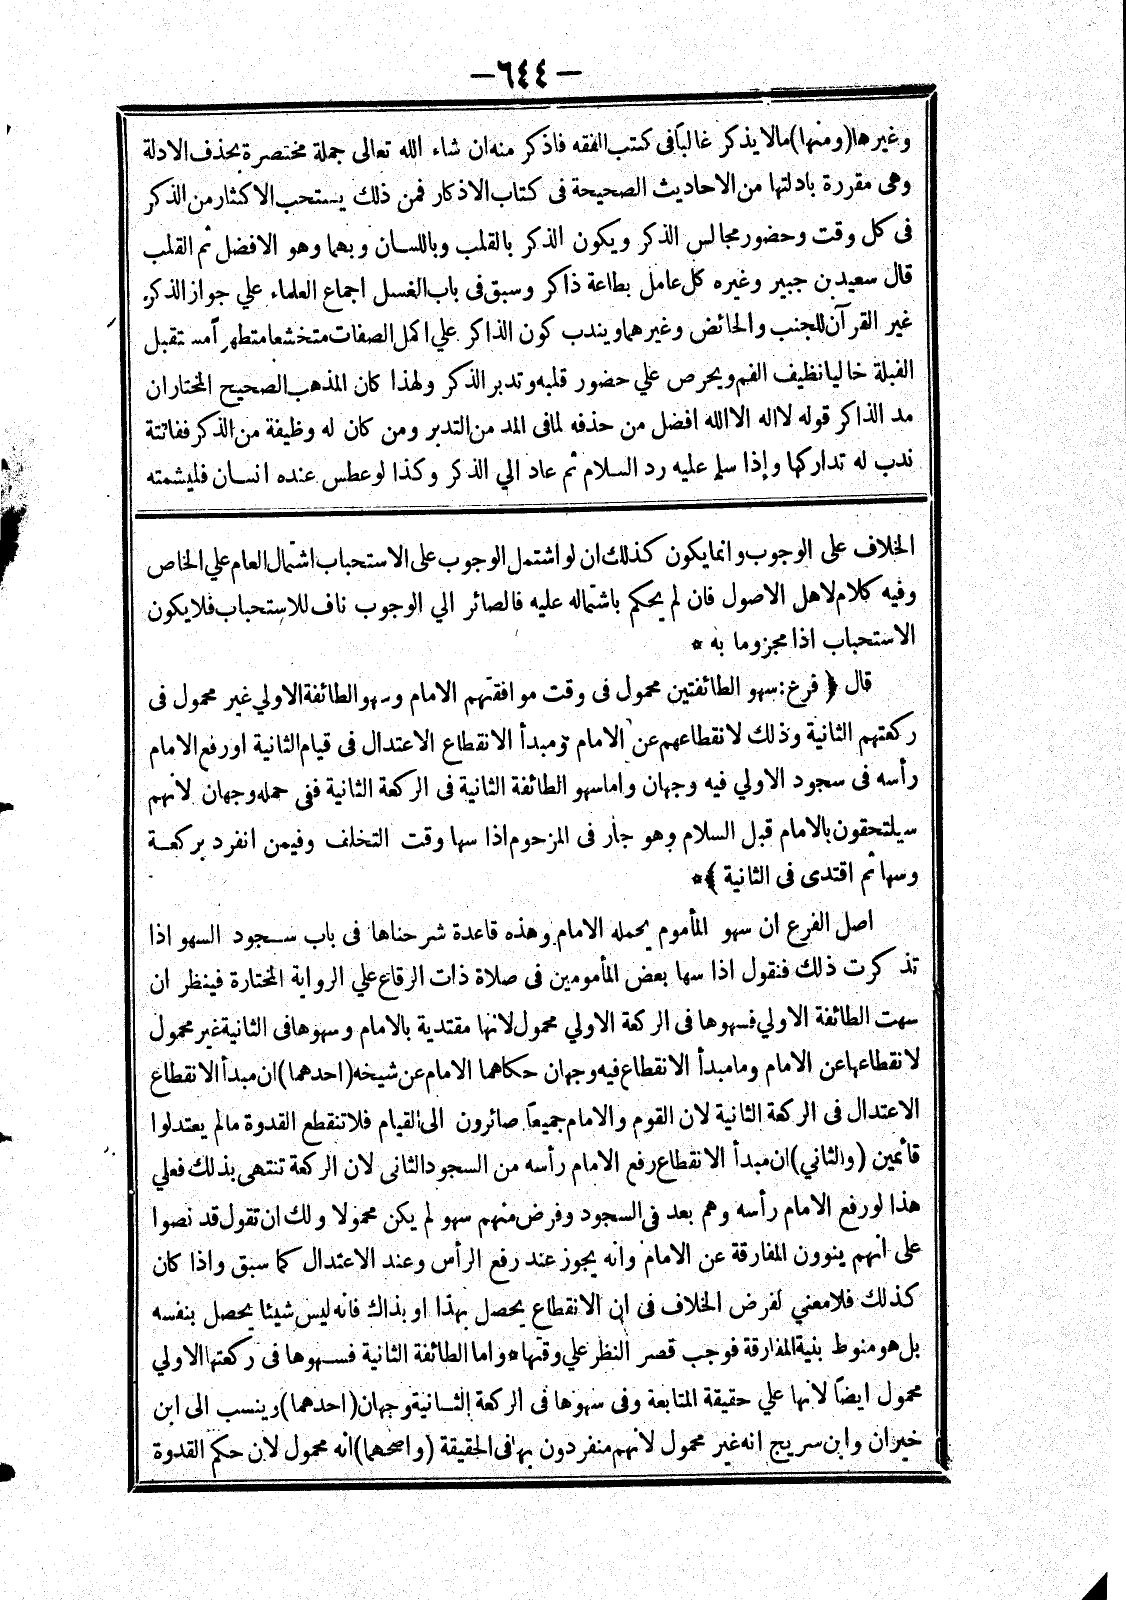 — ٦٤٤ —
وغيرها (ومنها) مالا يذكر غالبا فى كتب الفقه فاذكر منه ان شاء الله تعالى جملة مختصرة بحذف الادلة
وهى مقررة بادلتها من الاحاديث الصحيحة فى كتاب الاذكار فمن ذلك يستحب الاكثار من الذكر
فى كل وقت وحضور مجالس الذكر ويكون الذكر بالقلب وباللسان وبهما وهو الافضل ثم القلب
قال سعيد بن جبير وغيره كل عامل بطاعة ذاكر وسبق فى باب الغسل اجماع العلماء علي جواز الذكر
غير القرآن للجنب والحائض وغيرهما ويندب كون الذاكر علي اكمل الصفات متخشعا متطهراً مستقبل
القبلة خاليا نظيف الفم ويحرص علي حضور قلبه وتدبر الذكر ولهذا كان المذهب الصحيح المختار ان
مد الذاكر قوله لا اله الا الله افضل من حذفه لما فى المد من التدبر ومن كان له وظيفة من الذكر ففاتته
ندب له تداركها وإذا سلم عليه رد السلام ثم عاد الي الذكر وكذا لو عطس عنده انسان فليشمته
الخلاف على الوجوب وانما يكون كذلك ان لو اشتمل الوجوب على الاستحباب اشتمال العام علي الخاص
وفيه كلام لاهل الاصول فان لم يحكم باشتماله عليه فالصائر الي الوجوب ناف للاستحباب فلا يكون
الاستحباب اذا مجزوما به *
قال ﴿ فرع: سهو الطائفتين محمول فى وقت موافقتهم الامام وسهو الطائفة الاولي غير محمول فى
ركعتهم الثانية وذلك لانقطاعهم عن الامام ومبدأ الانقطاع الاعتدال فى قيام الثانية او رفع الامام
رأسه فى سجود الاولي فيه وجهان واما سهو الطائفة الثانية فى الركعة الثانية ففى حمله وجهان لانهم
سيلتحقون بالامام قبل السلام وهو جار فى المزحوم اذا سها وقت التخلف وفيمن انفرد بركعة
وسها ثم اقتدى فى الثانية ﴾ *
اصل الفرع ان سهو المأموم يحمله الامام وهذه قاعدة شرحناها فى باب سجود السهو اذا
تذكرت ذلك فنقول اذا سها بعض المأمومين فى صلاة ذات الرقاع علي الرواية المختارة فينظر ان
سهت الطائفة الاولي فسهوها فى الركعة الاولي محمول لانها مقتدية بالامام وسهوها فى الثانية غير محمول
لانقطاعها عن الامام وما مبدأ الانقطاع فيه وجهان حكاهما الامام عن شيخه (احدهما) ان مبدأ الانقطاع
الاعتدال فى الركعة الثانية لان القوم والامام جميعاً صائرون الى القيام فلا تنقطع القدوة مالم يعتدلوا
قائمين (والثاني) ان مبدأ الانقطاع رفع الامام رأسه من السجود الثانى لان الركعة تنتهى بذلك فعلي
هذا لو رفع الامام رأسه وهم بعد فى السجود وفرض منهم سهو لم يكن محمولا ولك ان تقول قد نصوا
على انهم ينوون المفارقة عن الامام وانه يجوز عند رفع الرأس وعند الاعتدال كما سبق واذا كان
كذلك فلا معني لفرض الخلاف فى ان الانقطاع يحصل بهذا او بذاك فانه ليس شيئا يحصل بنفسه
بل هو منوط بنية المفارقة فوجب قصر النظر علي وقتها * واما الطائفة الثانية فسهوها فى ركعتها الاولي
محمول ايضاً لانها علي حقيقة المتابعة وفى سهوها فى الركعة الثانية وجهان (احدهما) وينسب الى ابن
خيران وابن سريج انه غير محمول لانهم منفردون بها فى الحقيقة (واصحهما) انه محمول لان حكم القدوة